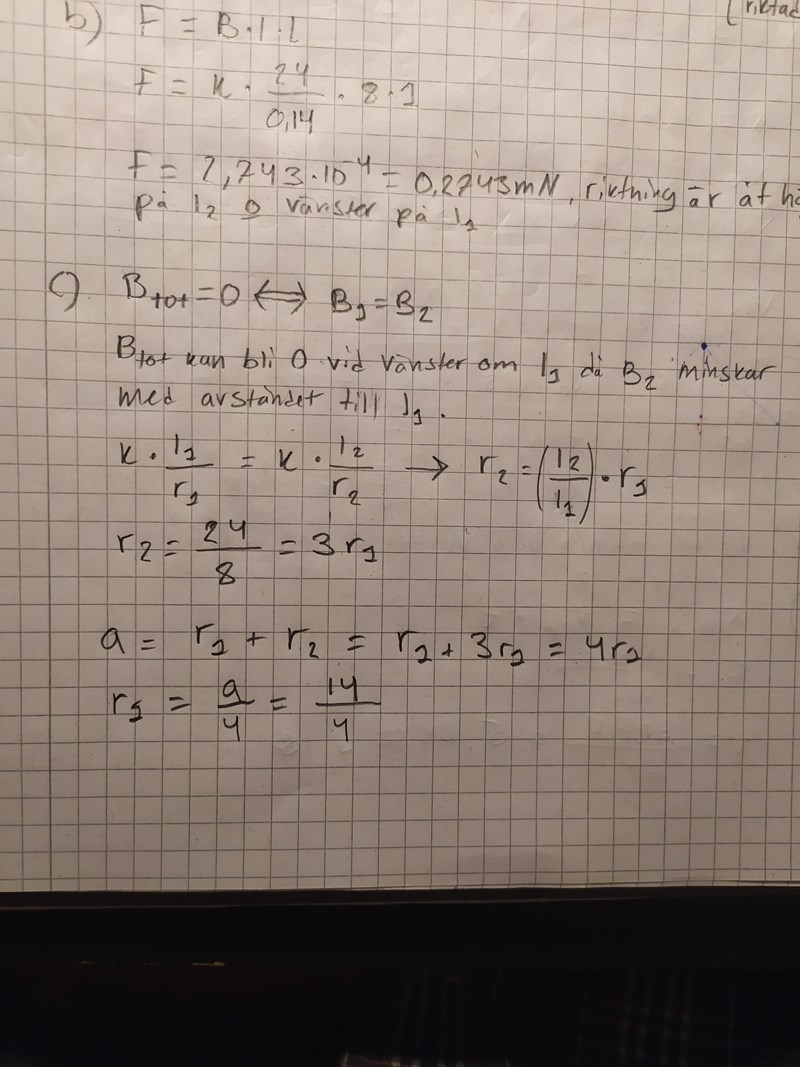 (riktad
b) F = B·I·l
F = k · 24/0,14 · 8·1
F = 2,743·10⁻⁴ = 0,2743mN, riktning är åt hö
på I₂ o vänster på I₁
c) Btot = 0 ⟺ B₁ = B₂
Btot kan bli 0 vid vänster om I₁ då B₂ minskar
med avståndet till I₁.
k · I₁/r₁ = k · I₂/r₂ → r₂ = (I₂/I₁) · r₁
r₂ = 24/8 = 3r₁
a = r₁ + r₂ = r₁ + 3r₁ = 4r₁
r₁ = a/4 = 14/4